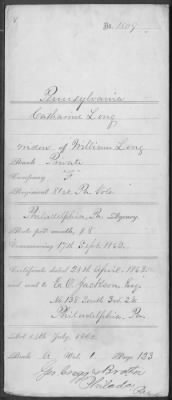 No. 1807
Pennsylvania
Catharine Long
widow of William Long
Rank Private
Company "F"
Regiment 81st Pa Vols
Philadelphia, Pa Agency.
Rate per month, $8
Commencing 17th Sept 1862
Certificate dated 21st April, 1863
and sent to E. C. Jackson Esq
No 138 South 3rd St
Philadelphia, Pa
Act 14th July, 1862
Book A Vol. 1 Page 133